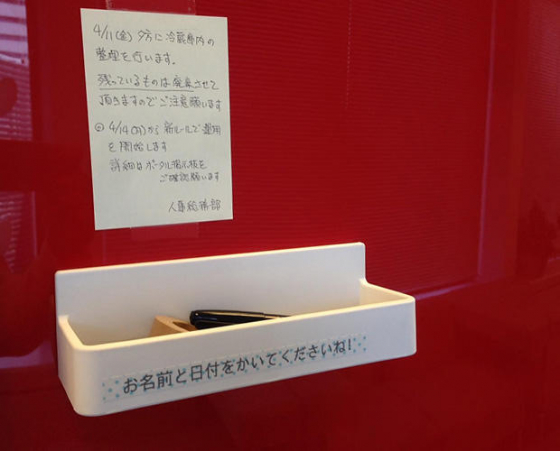 4/11(金) 夕方に冷蔵庫内の
整理を行います。
残っているものは廃棄させて
頂きますのでご注意願います
◎ 4/14(月)から新ルールで運用
を開始します
詳細はポータル掲示板を
ご確認願います
人事総務部
お名前と日付をかいてくださいね!